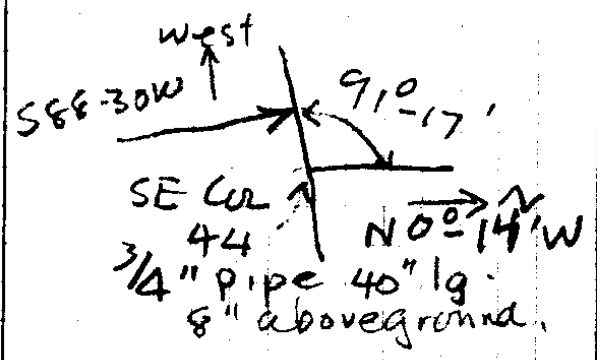 west
S88-30W
91°-17'
SE Cor
44
N 0° 14' W
3/4" pipe 40" lg.
8" aboveground.